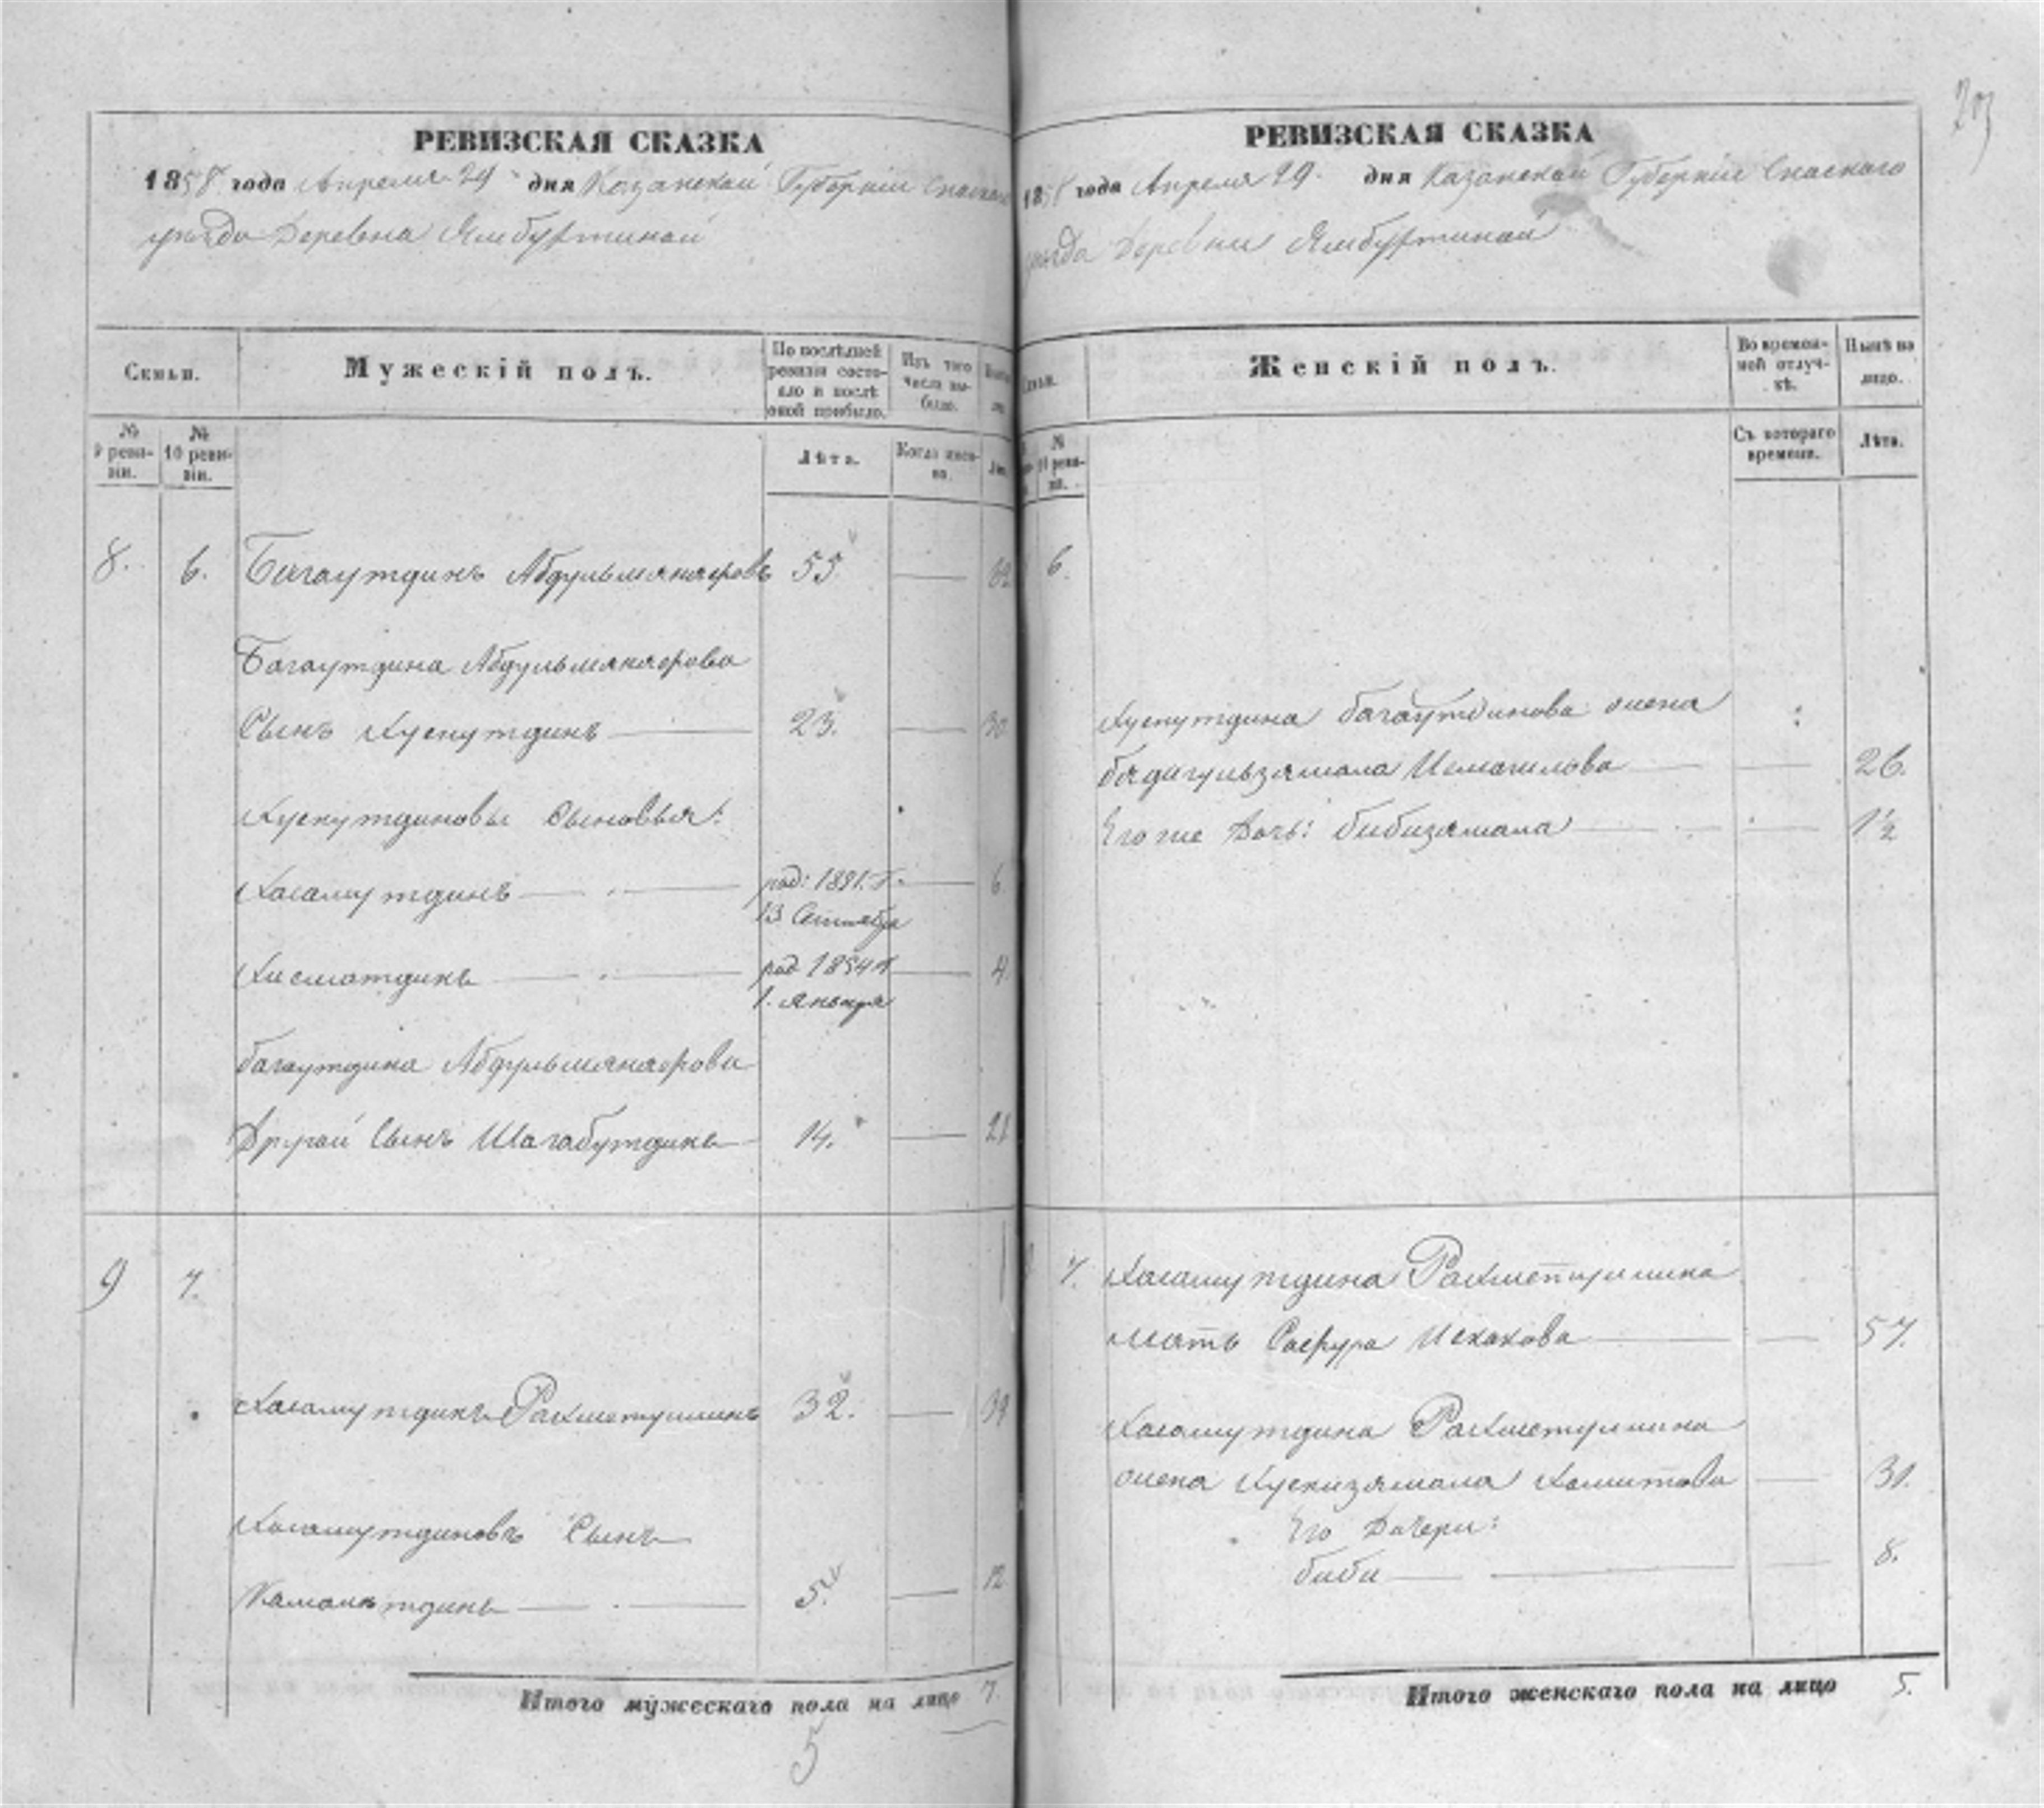 203
РЕВИЗСКАЯ СКАЗКА
1858 года Апреля 29 дня Казанской Губернии Спаскаго
уезда Деревна Ямбуртиной
Семьи.
Мужескій полъ.
По послѣдней ревизіи состояло и послѣ оной прибыло.
Изъ того числа выбыло.
№ 9 ревизіи.
№ 10 ревизіи.
Лѣта.
Когда именно.
8. 6. Багаутдинъ Абдульмянняфровъ 55
Багаутдина Абдульмянняфрова
Сынъ Хуснутдинъ 23. 30
Хуснутдиновы Сыновья:
Хасамутдинъ род: 1851. г. 6
13 Сентября
Хисматдинъ род 1854 г 4
1. Января
Багаутдина Абдульмянняфрова
Другой Сынъ Шагабутдинъ 14. 21
9 7.
Хасамутдинъ Рахметуллинъ 32. 39
Хасамутдиновъ Сынъ
Камалетдинъ 5. 12
Итого мужескаго пола на лицо 7.
5
РЕВИЗСКАЯ СКАЗКА
1858 года Апреля 29. дня Казанской Губерніи Спаскаго
уезда Деревни Ямбуртиной
Женскій полъ.
Во временной отлучкѣ.
Нынѣ на лицо.
№ 10 ревизіи.
Съ котораго времени.
Лѣта.
6.
Хуснутдина Багаутдинова жена
Бядигульзямала Исмагилова 26.
Его же Дочь: Бибизямала 1½
7. Хасамутдина Рахметуллина
мать Сафура Исхакова 57.
Хасамутдина Рахметуллина
жена Хуснизямала Хамитова 31.
Его Дочери:
Биби 8.
Итого женскаго пола на лицо 5.